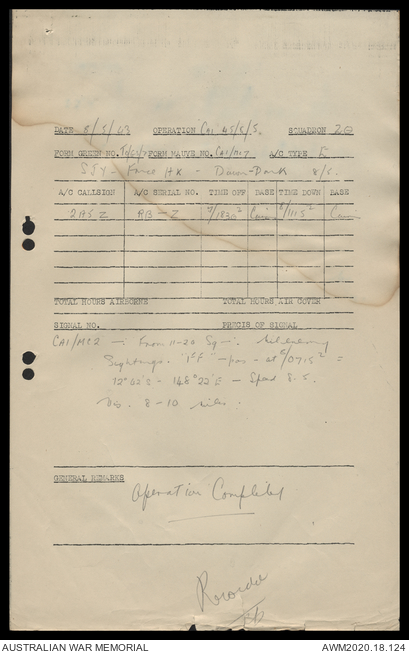 DATE 8/5/43 OPERATION Ca. 45/5/5. SQUADRON 20
FORM GREEN NO. FORM MAUVE NO. CA1/M17 A/C TYPE E
SSY - Force HX - Dawn-Dark 8/5.
A/C CALLSIGN A/C SERIAL NO. TIME OFF BASE TIME DOWN BASE
2A5 Z RB - Z 7/1830Z 8/1115Z
TOTAL HOURS AIRBORNE TOTAL HOURS AIR COVER
SIGNAL NO. PRECIS OF SIGNAL
CA1/MC2 - From 11-20 Sq -. Nil enemy
Sightings. "FF" - pos - at 8/0715Z =
12°02'S - 148°22'E - Speed 8.5.
Vis. 8-10 miles.
GENERAL REMARKS
Operation Completed
AUSTRALIAN WAR MEMORIAL AWM2020.18.124